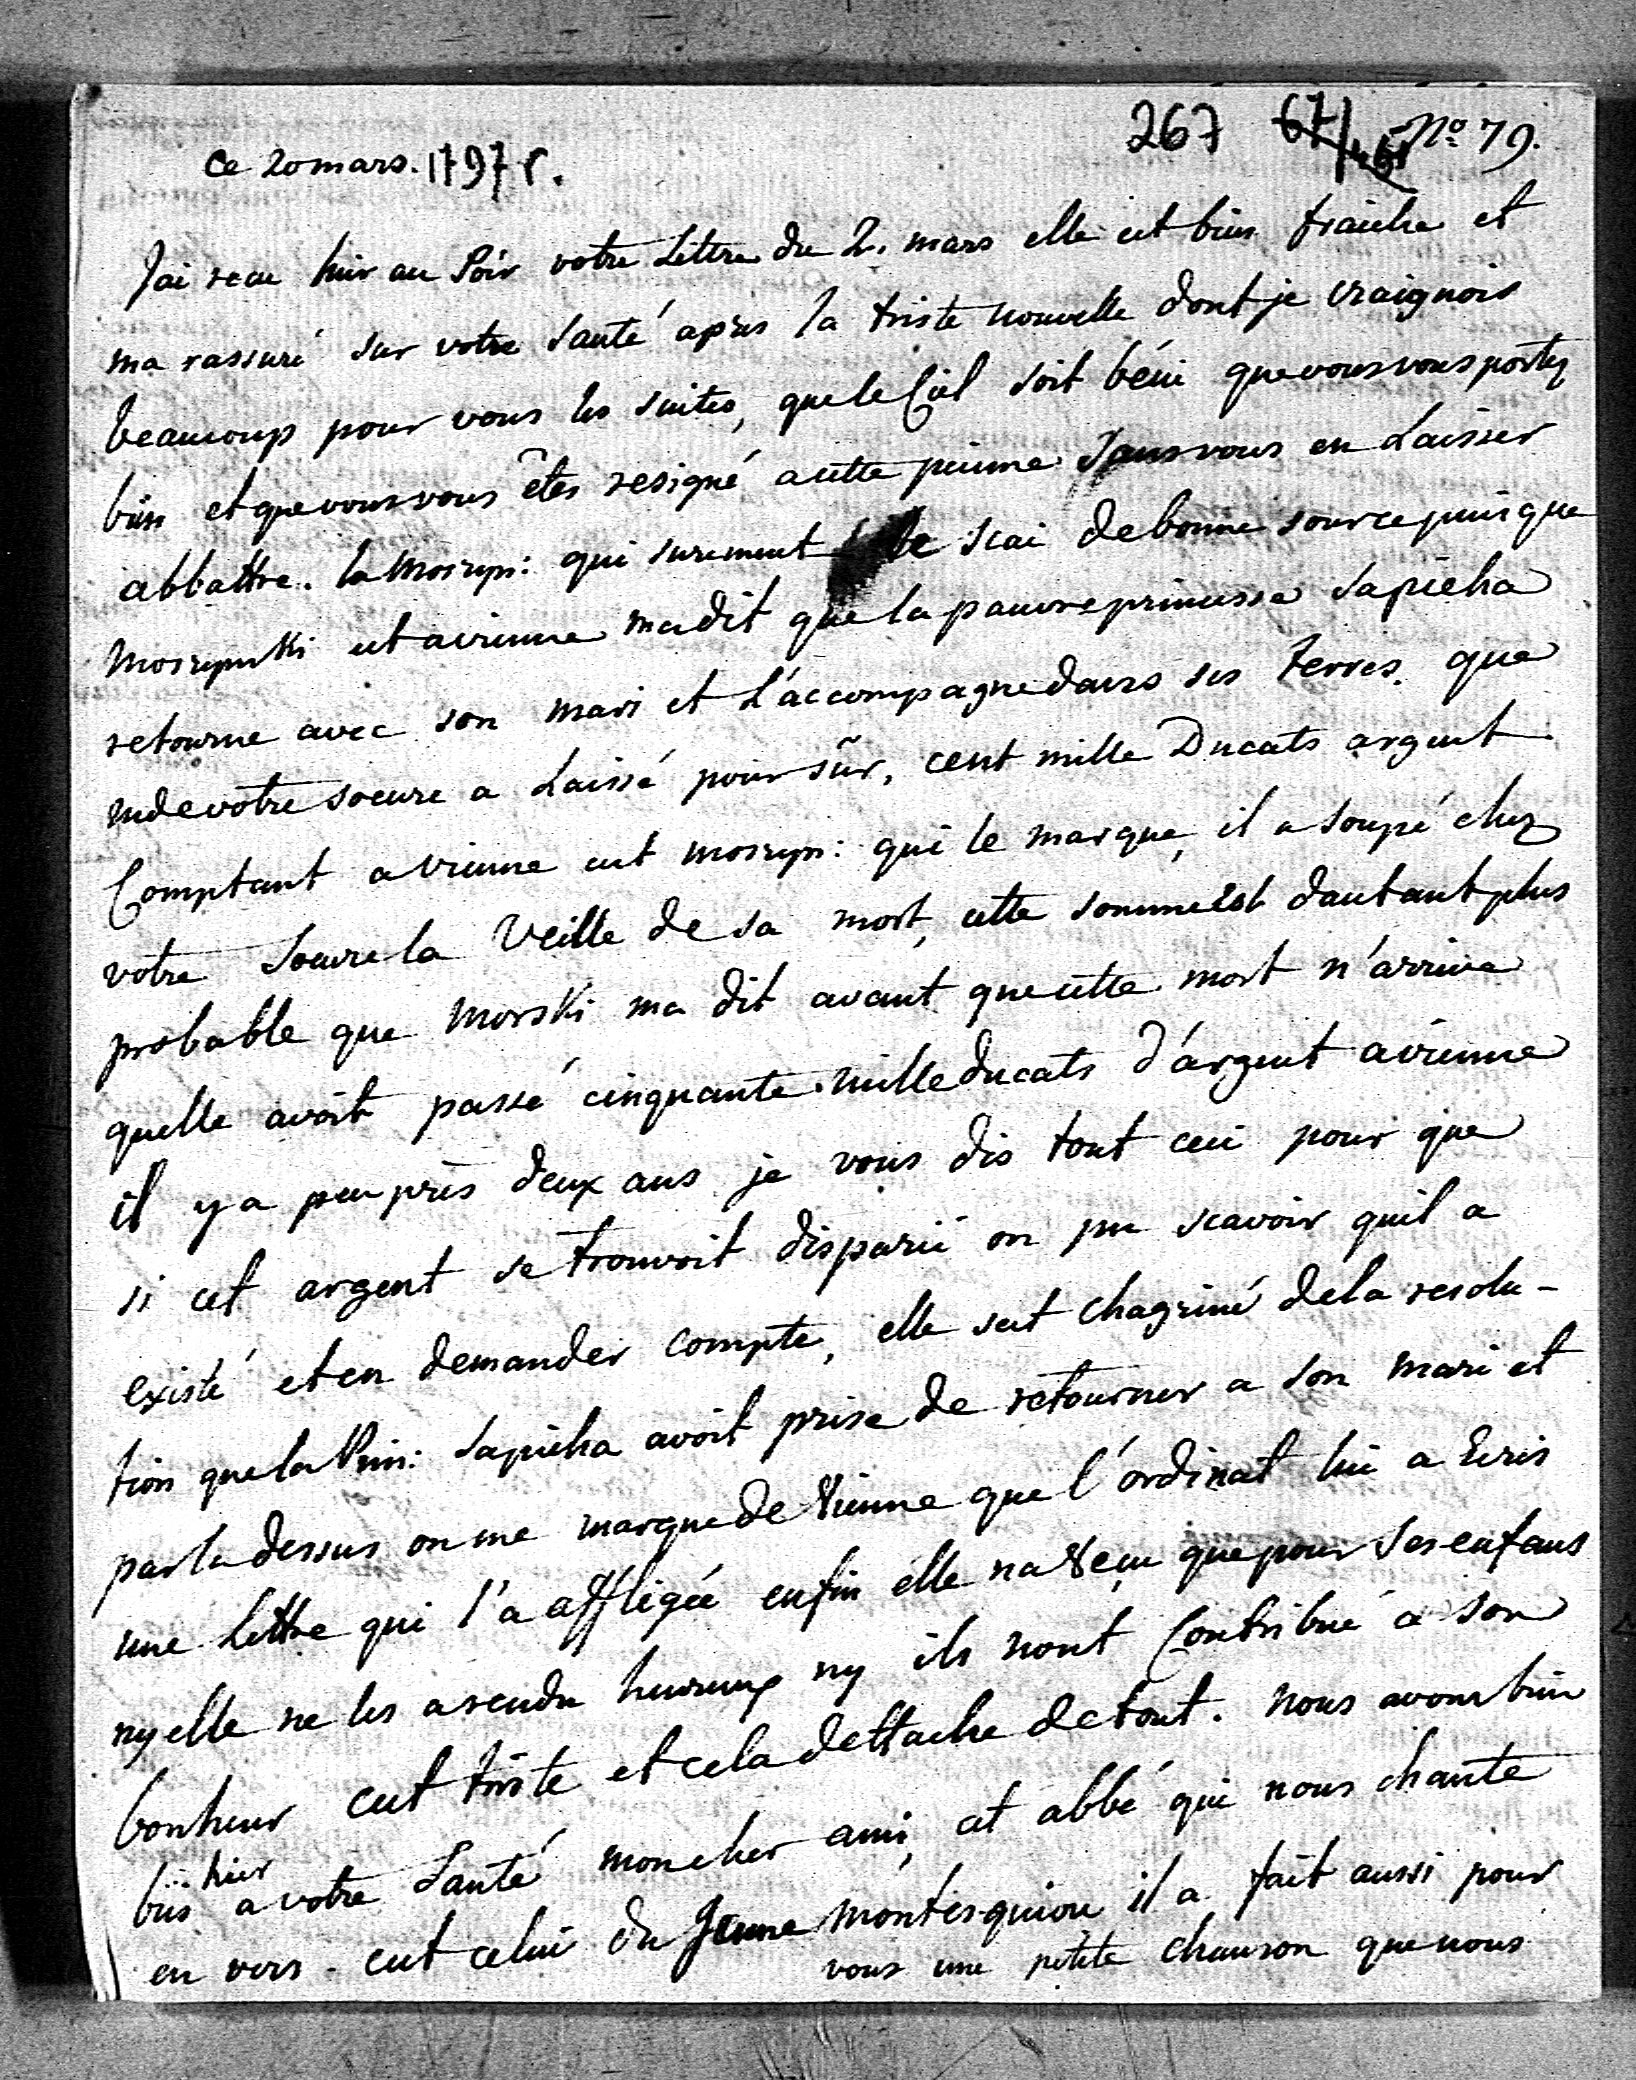 267 67/ No 79.
ce 20 mars. 1797 r.
Jai recu hier au Soir votre Lettre du 2. mars elle est bien fraiche et
ma rassuré sur votre santé apres la triste nouvelle dont je craignois
beaucoup pour vous les suites, que le Ciel soit béni que vous vous portez
bien et que vous vous êtes resigné a cette peinne sans vous en Laisser
abbattre. la Moszyn: qui surement le scai de bonne source puis que
Moszynski est a vienne ma dit que la pauvre princesse Sapieha
retourne avec son mari et L'accompagne dans ses terres. que
mde votre soeure a Laissé pour sûr, cent mille Ducats argent
Comptant a vienne cest moszyn: qui le marque, il a soupé chez
votre Soeure la Veille de sa mort, cette somme est dautant plus
probable que Morski ma dit avant que cette mort n'arriva
quelle avoit passé cinquante mille ducats d'argent a vienne
il y a peu près deux ans je vous dis tout ceci pour que
si cet argent se trouvoit disparü on pu scavoir quil a
existé et en demander compte, elle sest chagriné de la resolu-
tion que la Prin: Sapieha avoit prise de retourner a son mari et
par la dessus on me marque de Vienne que l'ordinat lui a Ecris
une Lettre qui l'a affligée enfin elle na Vecu que pour Ses enfans
ny elle ne les a rendu heureux ny ils nont Contribué a son
bonheur cest triste et cela dettache de tout. nous avons bien
bus hier a votre Santé mon cher ami, cet abbé qui nous chante
en vers - cest celui du Jeune Montesquiou il a fait aussi pour
vous une petite chanson que nous